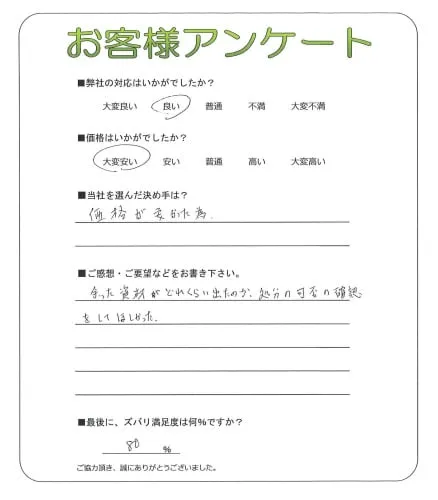 お客様アンケート
■弊社の対応はいかがでしたか？
大変良い 良い 普通 不満 大変不満
■価格はいかがでしたか？
大変安い 安い 普通 高い 大変高い
■当社を選んだ決め手は？
価格が安かった為.
■ご感想・ご要望などをお書き下さい。
余った資材がどれくらい出たのか、処分の可否の確認
をしてほしかった.
■最後に、ズバリ満足度は何%ですか？
80 %
ご協力頂き、誠にありがとうございました。